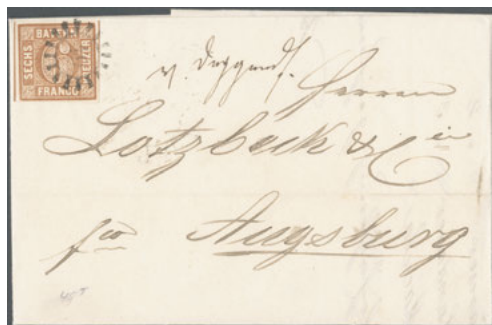 BAYERN
SECHS
KREUZER
FRANCO
v. Deggendf.
Herren
Lotzbeck & Cie
fco Augsburg